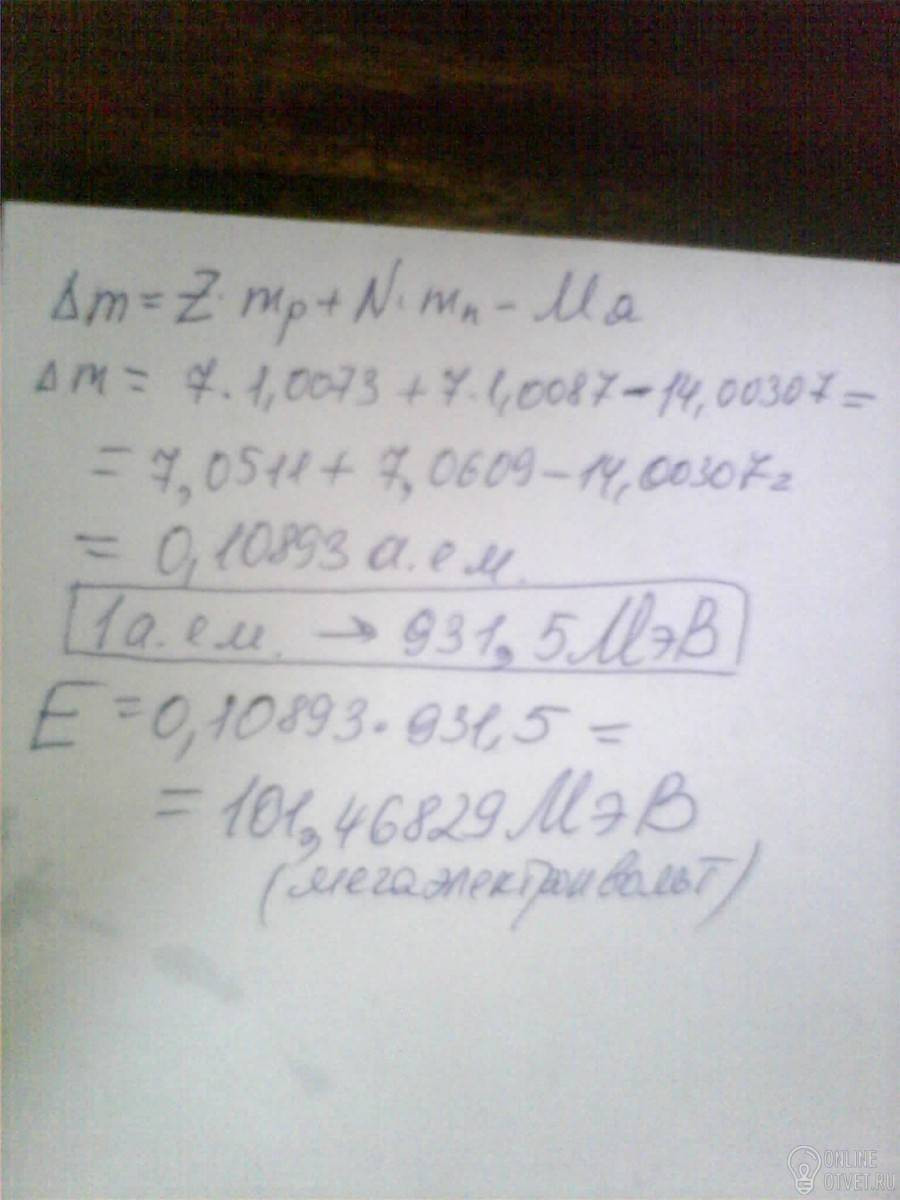 Δm = Z · mp + N · mn - Mя
Δm = 7 · 1,0073 + 7 · 1,0087 - 14,00307 =
= 7,0511 + 7,0609 - 14,00307 =
= 0,10893 а.ем.
1 а.ем. → 931,5 МэВ
E = 0,10893 · 931,5 =
= 101,46829 МэВ
(мегаэлектронвольт)
ONLINE
OTVET.RU